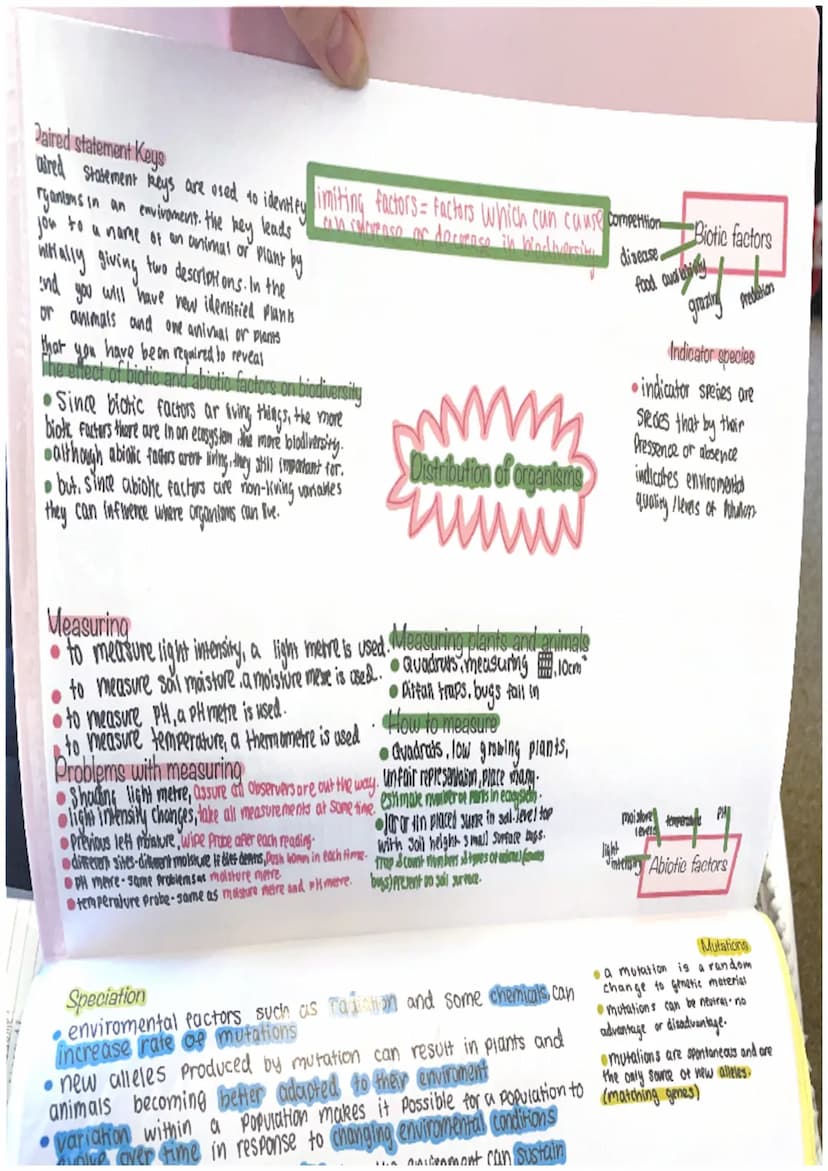 Paired statement Keys
aired statement keys are used to identify
rganisms in an enviroment. the key leads
you to a name of an animal or plant by
initially giving two descriptions. In the
end you will have new identified plants
or animals and one animal or plants
that you have been required to reveal
The effect of biotic and abiotic factors on biodiversity
• Since biotic factors ar living things, the more
biotic factors there are in an ecosystem the more biodiversity.
• although abiotic factors arent living, they still important for.
• but, since abiotic factors are non-living variables
they can influence where organisms can live.
imiting factors = factors which can cause
an increase or decrease in biodiversity
competition
disease
food availability
grazing
predation
Biotic factors
Indicator species
• indicator species are
species that by their
presence or absence
indicates enviromental
quality / levels of pollution.
Distribution of organisms
Measuring
• to measure light intensity, a light metre is used.
• to measure soil moisture, a moisture metre is used.
• to measure PH, a PH metre is used.
• to measure temperature, a thermometre is used
Problems with measuring
• Shading light metre, assure all observers are out the way.
• light intensity changes, take all measurements at same time.
• Previous left moisture, wipe probe after each reading.
• different sites-different moisture in each time.
• PH metre - same problems as moisture metre.
• temperature probe - same as moisture metre and pH metre.
Measuring plants and animals
• Quadrats, measuring , 10cm²
• Pitfall traps. bugs fall in
How to measure
• Quadrats, low growing plants,
unfair representation, place many.
estimate number of plants in ecosystem.
• Jar or tin placed sunk in soil, level top
with soil height. small surface bugs.
trap & count numbers & types of
bugs) present on soil surface.
moisture levels
temperature
PH
light intensity
Abiotic factors
Speciation
• enviromental factors such as radiation and some chemicals can
increase rate of mutations
• new alleles produced by mutation can result in plants and
animals becoming better adapted to their enviroment
• variation within a population makes it possible for a population to
evolve over time in response to changing enviromental conditions
the enviroment can sustain
Mutations
• a mutation is a random
change to genetic material
• mutations can be neutral - no
advantage or disadvantage.
• mutations are spontaneous and are
the only source of new alleles.
(matching genes)